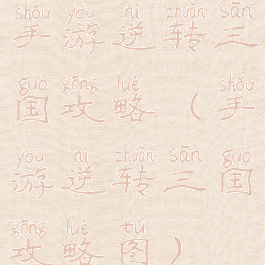 shǒu yóu nì zhuǎn sān
手游逆转三
guó gōng lüè shǒu
国攻略（手
yóu nì zhuǎn sān guó
游逆转三国
gōng lüè tú
攻略图）